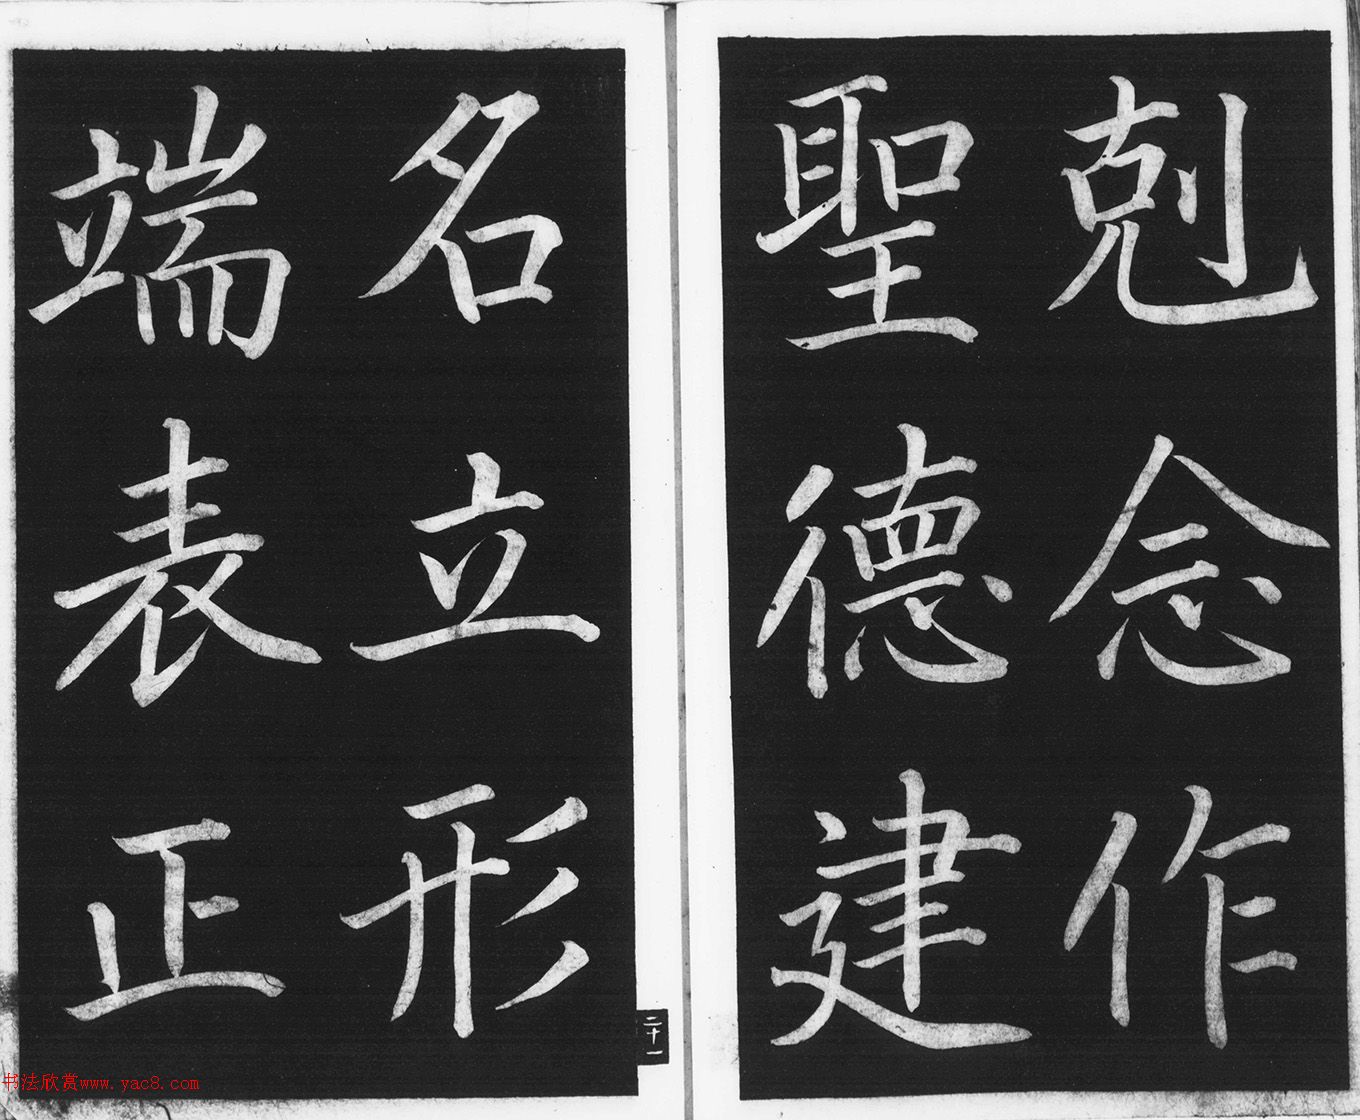 剋念作
聖德建
名立形
端表正
二十一
书法欣赏www.yac8.com